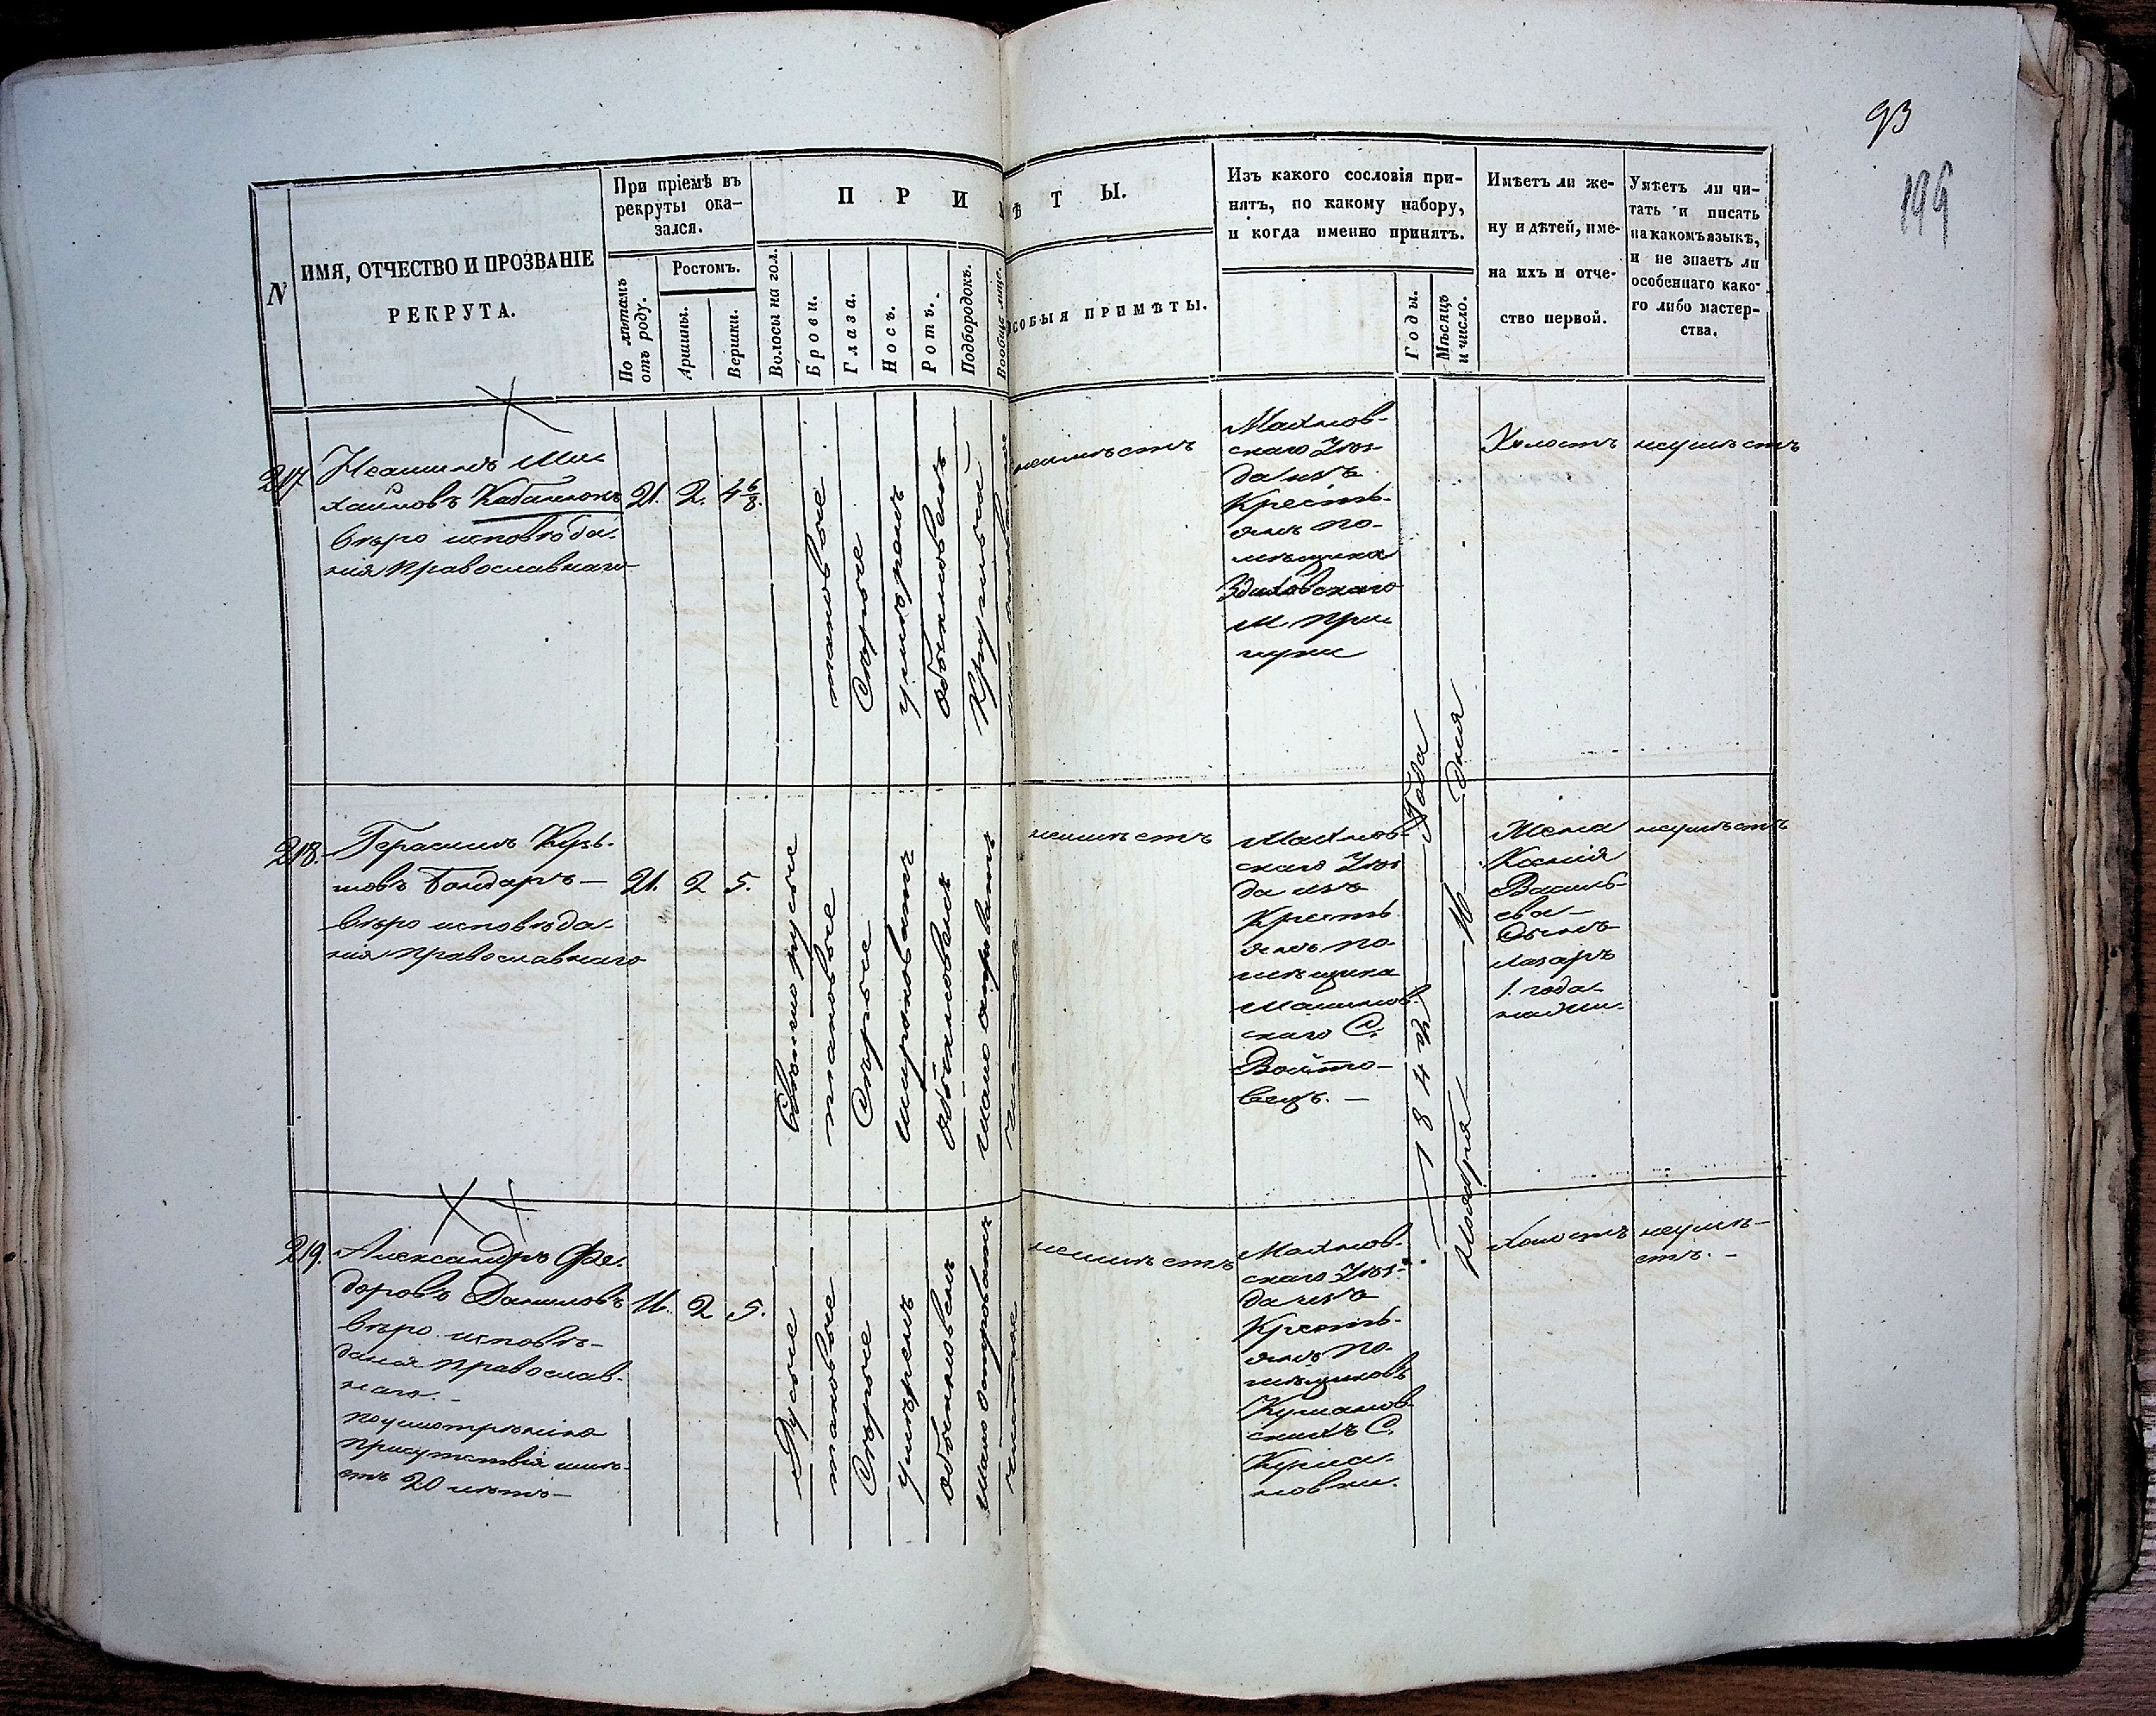 93
199
N
ИМЯ, ОТЧЕСТВО И ПРОЗВАНІЕ
РЕКРУТА.
При пріемѣ въ
рекруты ока-
зался.
По лѣтамъ
отъ роду.
Ростомъ.
Аршины.
Вершки.
П Р И М Ѣ Т Ы.
Волосы на гол.
Брови.
Глаза.
Носъ.
Ротъ.
Подбородокъ.
Вообще лице.
ОСОБЫЯ ПРИМѢТЫ.
Изъ какого сословія при-
нятъ, по какому набору,
и когда именно принятъ.
Годы.
Мѣсяцъ
и число.
Имѣетъ ли же-
ну и дѣтей, име-
на ихъ и отче-
ство первой.
Умѣетъ ли чи-
тать и писать
на какомъ языкѣ,
и не знаетъ ли
особеннаго како-
го либо мастер-
ства.
217.
Ми-
хайловъ
вѣро исповѣда-
нія православнаго
21. 2. 4 6/8.
таковые
Сѣрые
умѣренъ
обыкновенъ
Круглый
неимѣетъ
Махнов-
скаго Уѣз-
да изъ
Кресть-
янъ по-
мѣщика
Здиховскаго
м. При-
луки
Холостъ
неумѣетъ
218.
Герасимъ Кузь-
мовъ Бондарь —
вѣро исповѣда-
нія православнаго
21. 2 5.
Свѣтлорусые
таковые
Сѣрые
широковатъ
обыкновенъ
мало островатъ
чистое
неимѣетъ
Махнов-
скаго Уѣз-
да изъ
Кресть-
янъ по-
мѣщика
скаго С.
Войто-
вецъ. —
1843 Года
Ноября 16 дня
Жена
Ксенія
Василь-
ева —
Сынъ
Лазарь
1. года
неумѣетъ
219.
Александръ Фе-
доровъ Даниловъ
вѣро исповѣ-
данія православ-
наго. —
поусмотренію
присутствія имѣ-
етъ 20 лѣтъ —
2 5.
Русые
таковые
Сѣрые
умѣренъ
обыкновенъ
мало островатъ
чистое
неимѣетъ
Махнов-
скаго Уѣз-
да изъ
Кресть-
янъ по-
мѣщиковъ
Куманов-
скихъ С.
Кума-
новки.
Холостъ
неумѣ-
етъ. —